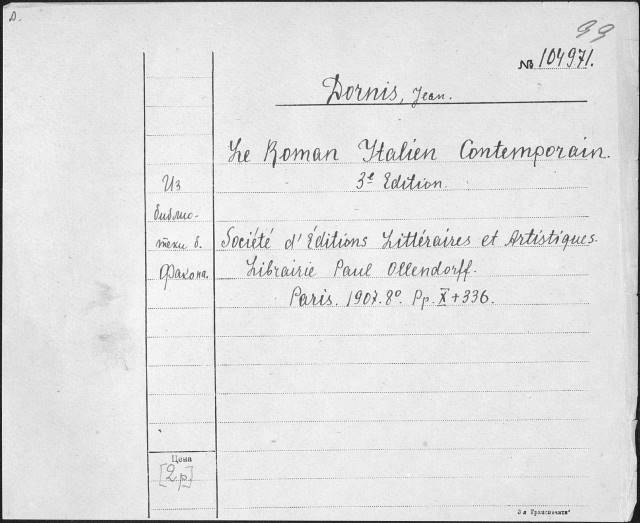 D.
99
№ 104971.
Dornis, Jean.
Le Roman Italien Contemporain.
3e Edition.
Société d'Éditions Littéraires et Artistiques.
Librairie Paul Ollendorff.
Paris. 1907. 8°. Pp. X + 336.
Из
библио-
теки б.
Фахона.
Цена
[2 р.]